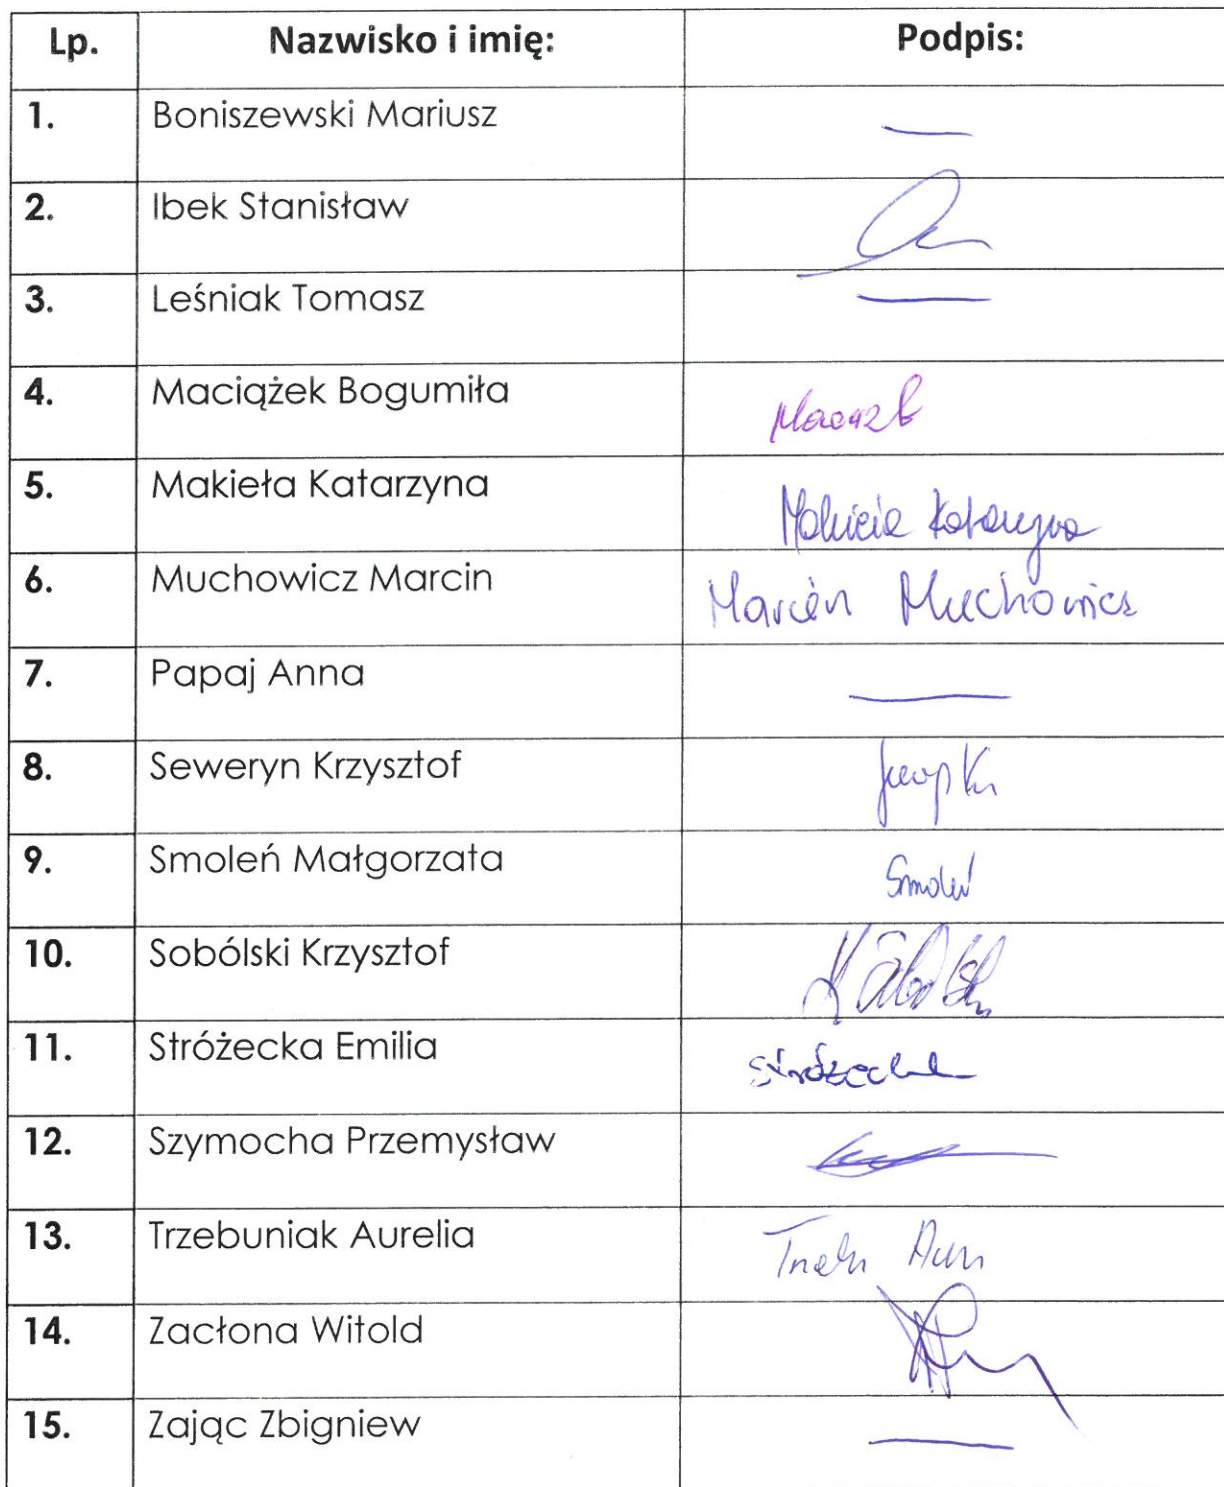 Lp. Nazwisko i imię: Podpis:
1. Boniszewski Mariusz
2. Ibek Stanisław
3. Leśniak Tomasz
4. Maciążek Bogumiła
5. Makieła Katarzyna Makieła Katarzyna
6. Muchowicz Marcin Marcin Muchowicz
7. Papaj Anna
8. Seweryn Krzysztof
9. Smoleń Małgorzata Smoleń
10. Sobólski Krzysztof
11. Stróżecka Emilia Stróżecka
12. Szymocha Przemysław
13. Trzebuniak Aurelia
14. Zacłona Witold
15. Zając Zbigniew